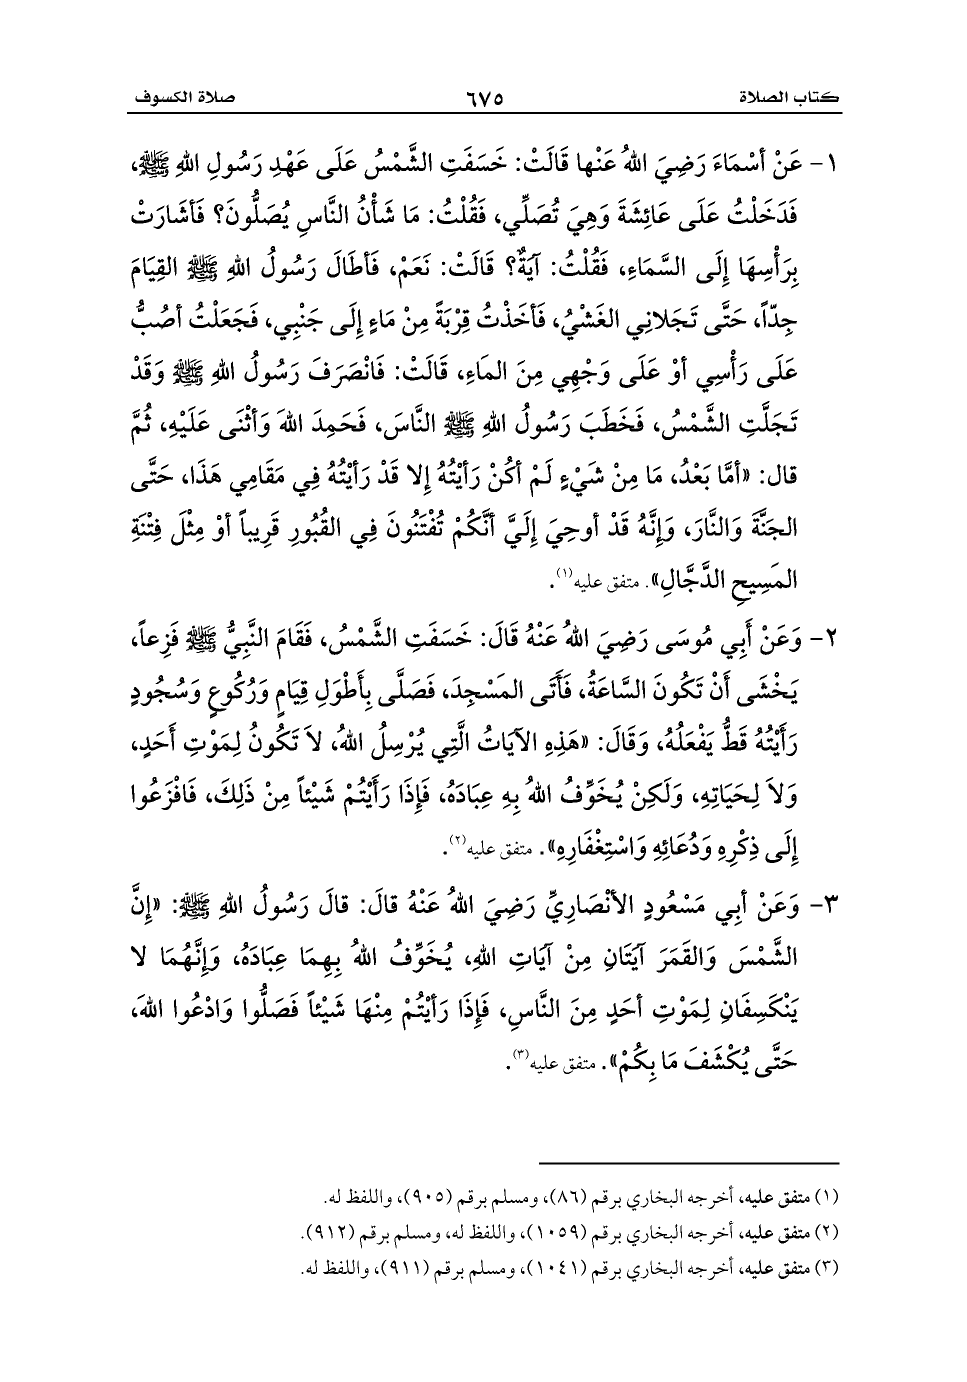 كتاب الصلاة ٦٧٥ صلاة الكسوف
١- عَنْ أسْمَاءَ رَضِيَ اللهُ عَنْها قَالَتْ: خَسَفَتِ الشَّمْسُ عَلَى عَهْدِ رَسُولِ اللهِ ﷺ،
فَدَخَلْتُ عَلَى عَائِشَةَ وَهِيَ تُصَلِّي، فَقُلْتُ: مَا شَأْنُ النَّاسِ يُصَلُّونَ؟ فَأشَارَتْ
بِرَأْسِهَا إِلَى السَّمَاءِ، فَقُلْتُ: آيَةٌ؟ قَالَتْ: نَعَمْ، فَأطَالَ رَسُولُ اللهِ ﷺ القِيَامَ
جِدّاً، حَتَّى تَجَلانِي الغَشْيُ، فَأخَذْتُ قِرْبَةً مِنْ مَاءٍ إِلَى جَنْبِي، فَجَعَلْتُ أصُبُّ
عَلَى رَأْسِي أوْ عَلَى وَجْهِي مِنَ المَاءِ، قَالَتْ: فَانْصَرَفَ رَسُولُ اللهِ ﷺ وَقَدْ
تَجَلَّتِ الشَّمْسُ، فَخَطَبَ رَسُولُ اللهِ ﷺ النَّاسَ، فَحَمِدَ اللهَ وَأثْنَى عَلَيْهِ، ثُمَّ
قال: «أمَّا بَعْدُ، مَا مِنْ شَيْءٍ لَمْ أكُنْ رَأيْتُهُ إِلا قَدْ رَأيْتُهُ فِي مَقَامِي هَذَا، حَتَّى
الجَنَّةَ وَالنَّارَ، وَإِنَّهُ قَدْ أوحِيَ إِلَيَّ أنَّكُمْ تُفْتَنُونَ فِي القُبُورِ قَرِيباً أوْ مِثْلَ فِتْنَةِ
المَسِيحِ الدَّجَّالِ». متفق عليه(١).
٢- وَعَنْ أَبِي مُوسَى رَضِيَ اللهُ عَنْهُ قَالَ: خَسَفَتِ الشَّمْسُ، فَقَامَ النَّبِيُّ ﷺ فَزِعاً،
يَخْشَى أَنْ تَكُونَ السَّاعَةُ، فَأَتَى المَسْجِدَ، فَصَلَّى بِأَطْوَلِ قِيَامٍ وَرُكُوعٍ وَسُجُودٍ
رَأيْتُهُ قَطُّ يَفْعَلُهُ، وَقَالَ: «هَذِهِ الآيَاتُ الَّتِي يُرْسِلُ اللهُ، لاَ تَكُونُ لِمَوْتِ أَحَدٍ،
وَلاَ لِحَيَاتِهِ، وَلَكِنْ يُخَوِّفُ اللهُ بِهِ عِبَادَهُ، فَإِذَا رَأَيْتُمْ شَيْئاً مِنْ ذَلِكَ، فَافْزَعُوا
إِلَى ذِكْرِهِ وَدُعَائِهِ وَاسْتِغْفَارِهِ». متفق عليه(٢).
٣- وَعَنْ أبِي مَسْعُودٍ الأنْصَارِيِّ رَضِيَ اللهُ عَنْهُ قالَ: قالَ رَسُولُ اللهِ ﷺ: «إِنَّ
الشَّمْسَ وَالقَمَرَ آيَتَانِ مِنْ آيَاتِ اللهِ، يُخَوِّفُ اللهُ بِهِمَا عِبَادَهُ، وَإِنَّهُمَا لا
يَنْكَسِفَانِ لِمَوْتِ أحَدٍ مِنَ النَّاسِ، فَإِذَا رَأيْتُمْ مِنْهَا شَيْئاً فَصَلُّوا وَادْعُوا اللهَ،
حَتَّى يُكْشَفَ مَا بِكُمْ». متفق عليه(٣).
(١) متفق عليه، أخرجه البخاري برقم (٨٦)، ومسلم برقم (٩٠٥)، واللفظ له.
(٢) متفق عليه، أخرجه البخاري برقم (١٠٥٩)، واللفظ له، ومسلم برقم (٩١٢).
(٣) متفق عليه، أخرجه البخاري برقم (١٠٤١)، ومسلم برقم (٩١١)، واللفظ له.